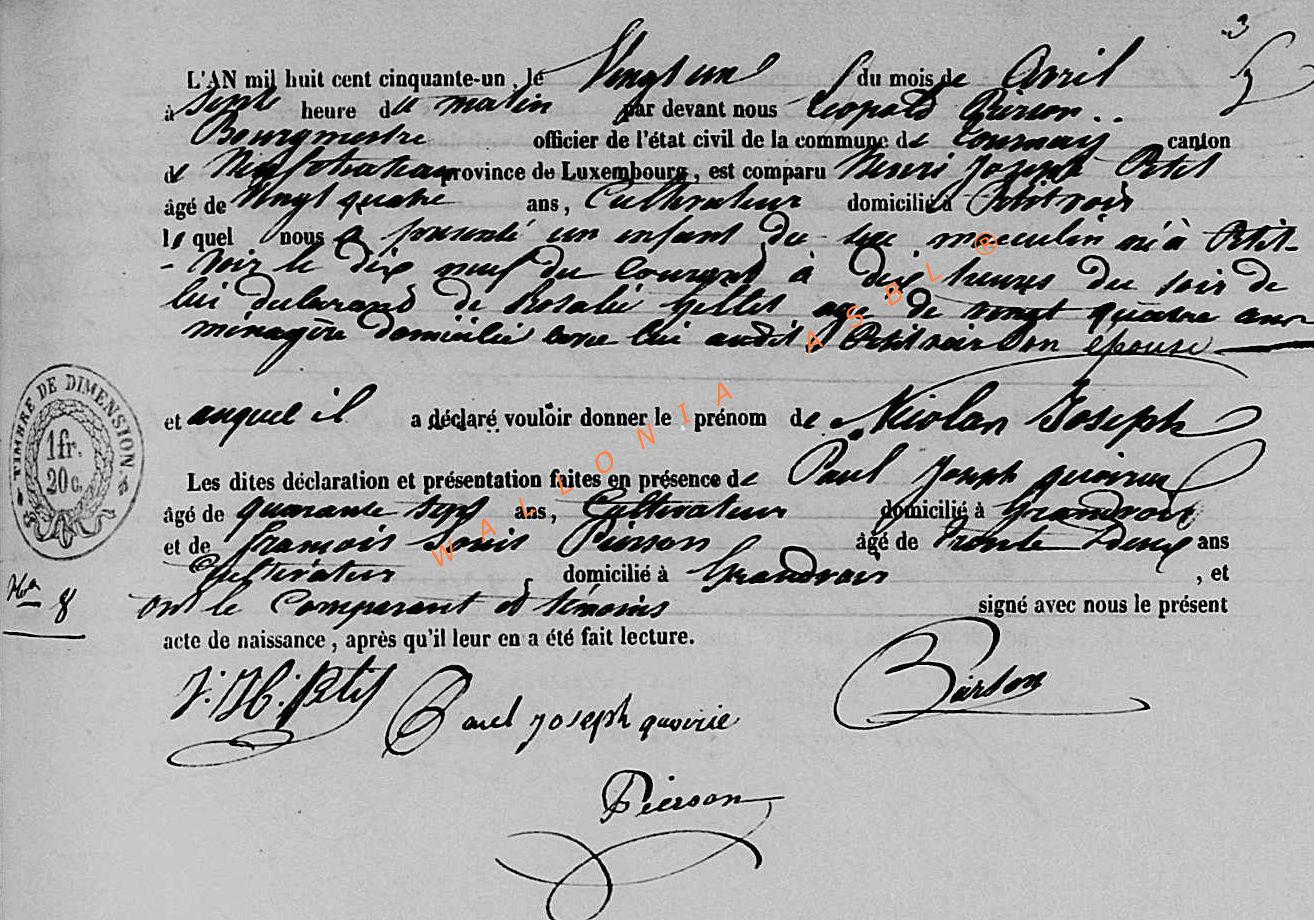 3
L'AN mil huit cent cinquante-un, le Vingt un du mois de Avril
à heure du matin par devant nous Léopold Pierson
Bourgmestre officier de l'état civil de la commune de Tournay canton
de Neufchateau province de Luxembourg, est comparu Henri Joseph Petit
âgé de Vingt quatre ans, Cultivateur domicilié à Petitvoir
lequel nous a présenté un enfant du sexe masculin né à Petit-
- Voir le dix neuf du Courant à dix heures du soir de
lui déclarant de Rosalie Gillet agé de vingt quatre ans
ménagère domicilié avec lui audit Petitvoir son épouse
et auquel il a déclaré vouloir donner le prénom de Nicolas Joseph
TIMBRE DE DIMENSION.
1fr.
20c.
Les dites déclaration et présentation faites en présence de Paul Joseph
âgé de quarante sept ans, Cultivateur domicilié à Grandvoir
et de François Louis Pierson âgé de Trente Deux ans
Cultivateur, domicilié à Grandvoir, et
ont le Comparant et témoins signé avec nous le présent
acte de naissance, après qu'il leur en a été fait lecture.
8
Petit
Paul joseph quoirie
Pierson
Pierson
WALLONIA ASBL ®